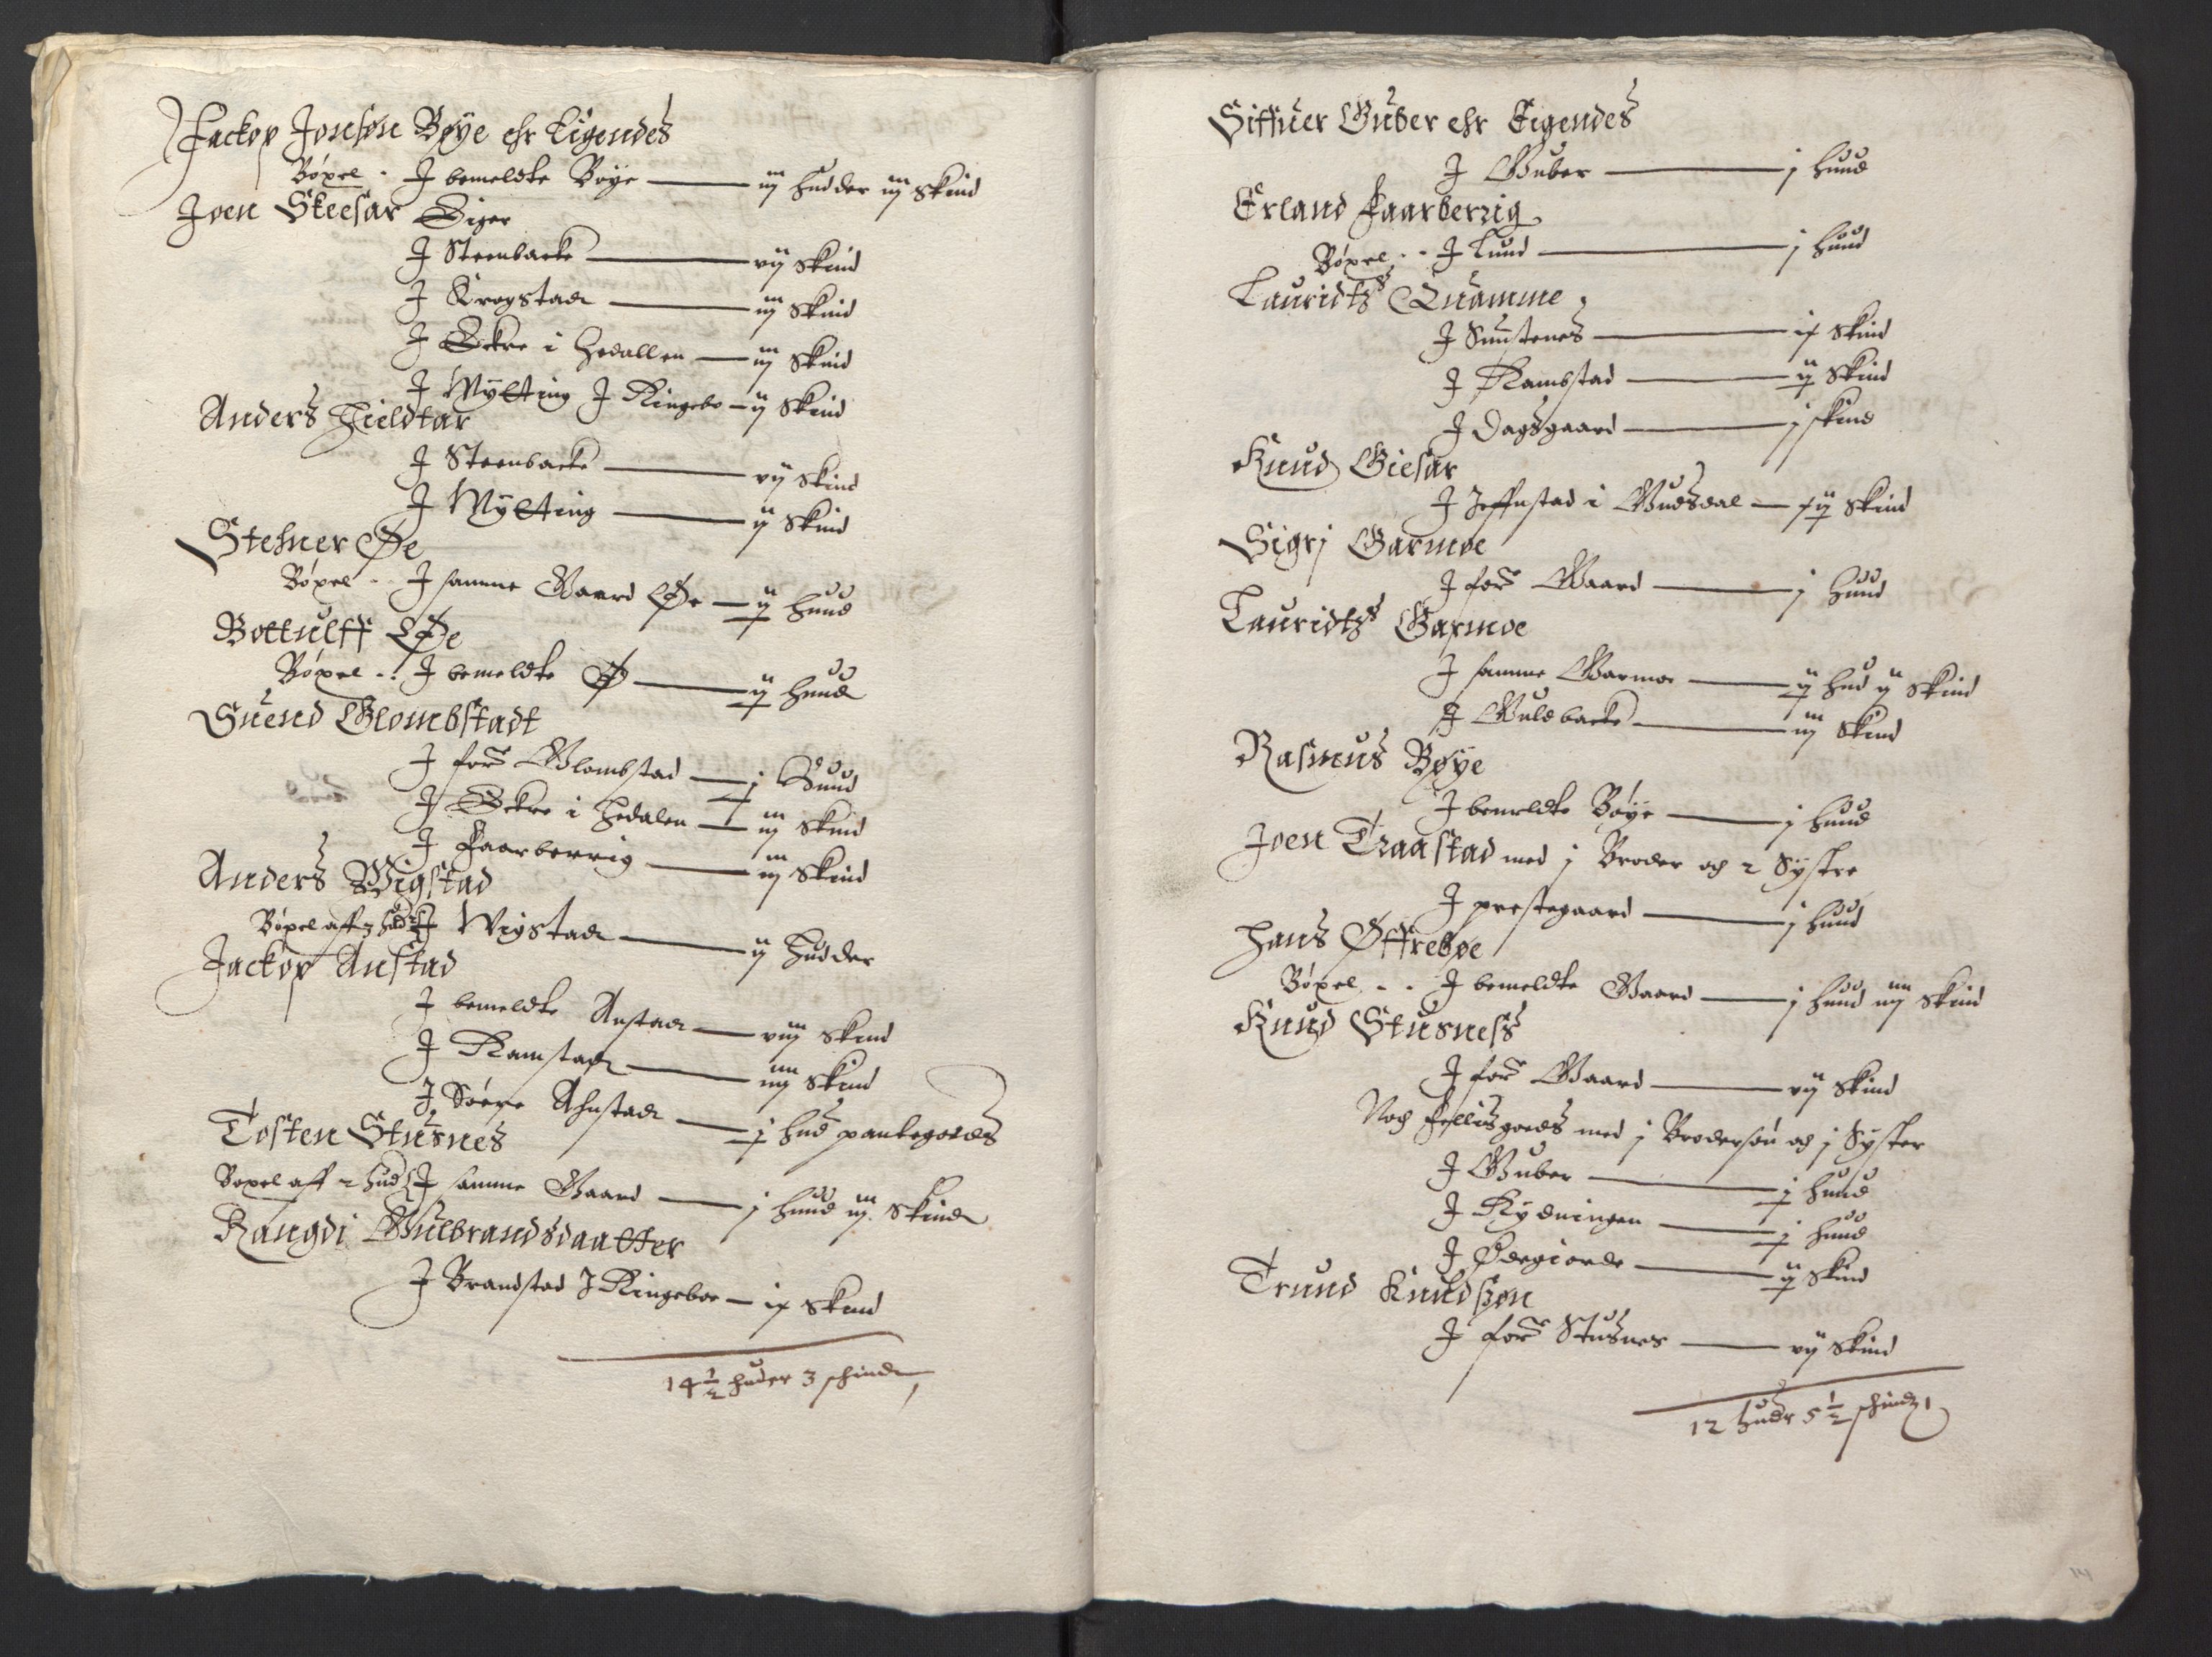 Jackop Jonsøn Bøye ehr Eigendes
Bøxel . J bemeldte Bøye — iij hudder iij Skind
Joen Skeesar Eiger
J Steenbacke — vij Skind
J Krogstad — iij Skind
J Eckre i Hedallen — iij Skind
J Mÿtting J Ringebo — ij Skind
Anders Hieldtar
J Steenbacke — vij Skind
J Mÿtting — ij Skind
Stehner Øe
Bøxel - - J samme Gaard Øe — ij hund
Bottulff Øe
Bøxel - . J bemeldte Ø — ij hund
Suend Glombstadt
J forn Glombstad — j Hund
J Eckre i Hedalen — iij Skind
J Faarberrig — iij Skind
Anders Wigstad
Bøxel aff 3 hud J Wigstad — ij Hudder
Jackop Anstad
J bemeldte Anstad — viij Skind
J Ramstad — iiij Skind
J Søere Ahnstad — j hud pantegoeds
Tosten Stusnes
Boxel aff 2 hud J samme Gaard — j hund iij Skind
Rangdi Gulbrandsdaatter
J Brandstad J Ringeboe — ix Skind
14 1/2 huder 3 schind
Siffuer Guber ehr Eigendes
J Guber — j hund
Erland Faarberrig
Bøxel - - J Lund — j hund
Lauridtz Quamme
J Suustenes — ix Skind
J Rambstad — ij Skind
J Dagsgaard — j skind
Knud Giesar
J Jeffnstad i Gudsdal — xij Skind
Sigrj Garmoe
J forn Gaard — j hund
Lauridtz Garmoe
J samme Garmoe — ij hud ij Skind
J Guldbacke — iij Skind
Rasmus Bøye
J bemeldte Bøye — j hund
Joen Traastad med j Broder och 2 Sÿstre
J prestegaard — j hund
Hans Øffreboe
Bøxel - - J bemeldte Gaard — j hund iiij Skind
Knud Stusness
J forn Gaard — vij Skind
Noch fellisgoeds med j Brodersøn och j Sÿster
J Guber — j hund
J Rydningen — j hund
J Ødegiorde — ij Skind
Trund Knudsøn
J forn Stusnes — vij Skind
12 hudr 5 1/2 schind
14